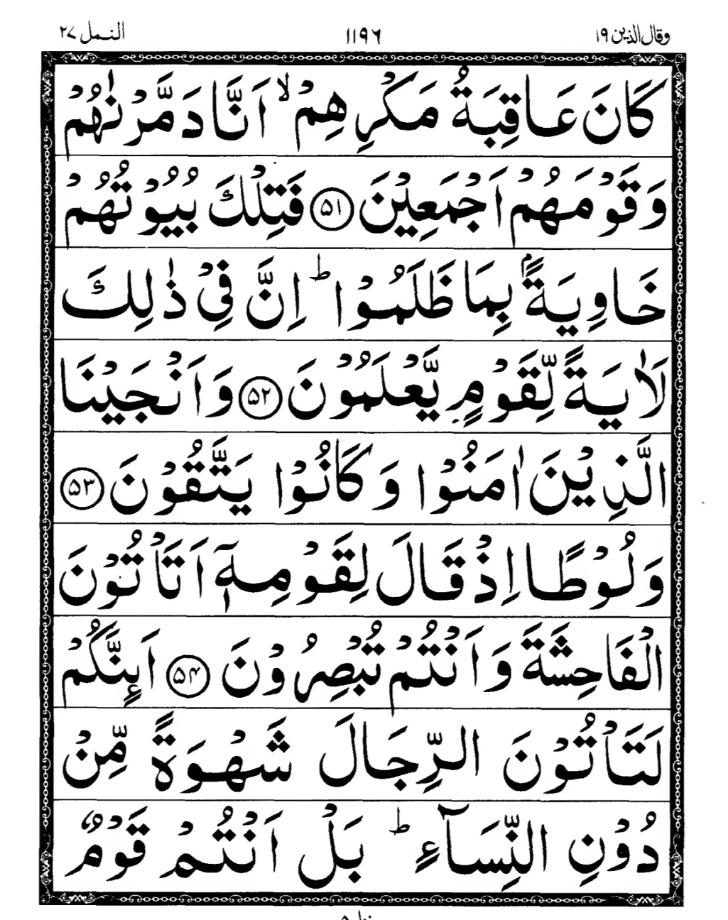 وقال الذین ۱۹ ۱۱۹۶ النمل ۲۷
كَانَ عَاقِبَةُ مَكْرِهِمْ ۙ اَنَّا دَمَّرْنٰهُمْ
وَقَوْمَهُمْ اَجْمَعِيْنَ ۝۵۱ فَتِلْكَ بُيُوْتُهُمْ
خَاوِيَةًۢ بِمَا ظَلَمُوْا ؕ اِنَّ فِيْ ذٰلِكَ
لَاٰيَةً لِّقَوْمٍ يَّعْلَمُوْنَ ۝۵۲ وَاَنْجَيْنَا
الَّذِيْنَ اٰمَنُوْا وَكَانُوْا يَتَّقُوْنَ ۝۵۳
وَلُوْطًا اِذْ قَالَ لِقَوْمِهٖۤ اَتَاْتُوْنَ
الْفَاحِشَةَ وَاَنْتُمْ تُبْصِرُوْنَ ۝۵۴ اَىِٕنَّكُمْ
لَتَاْتُوْنَ الرِّجَالَ شَهْوَةً مِّنْ
دُوْنِ النِّسَآءِ ؕ بَلْ اَنْتُمْ قَوْمٌ